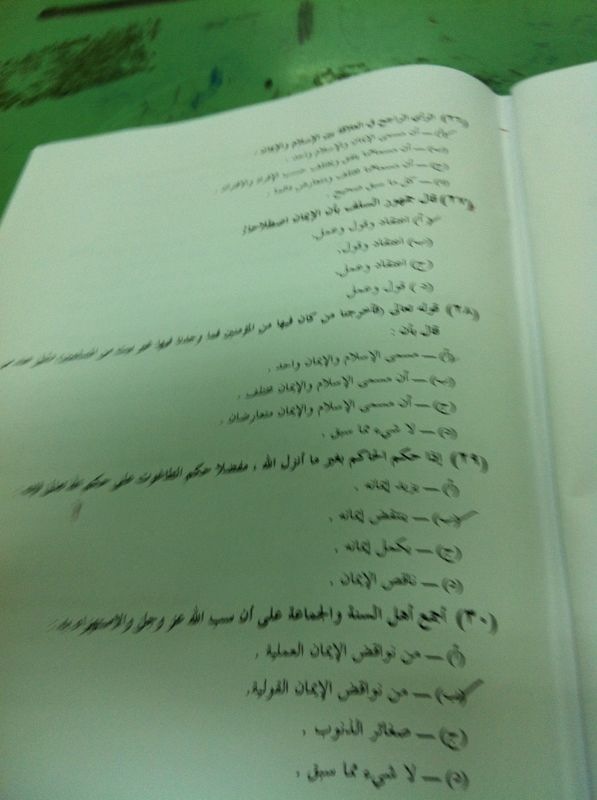 ٢٦) الرأي الراجح في العلاقة بين الإسلام والإيمان :
(أ) – أن مسمى الإيمان والإسلام واحد .
(ب) – أن مسماهما يتفق ويختلف حسب الإفراد والاقتران .
(ج) – أن مسماهما مختلف ومتعارض دائما .
(د) – كل ما سبق صحيح .
٢٧) قال جمهور السلف بأن الإيمان اصطلاحا:
(أ) اعتقاد وقول وعمل.
(ب) اعتقاد وقول.
(ج) اعتقاد وعمل.
(د) قول وعمل
٢٨) قوله تعالى (فأخرجنا من كان فيها من المؤمنين فما وجدنا فيها غير بيت من المسلمين)
قال بأن :
(أ) – مسمى الإسلام والإيمان واحد .
(ب) – أن مسمى الإسلام والإيمان مختلف .
(ج) – أن مسمى الإسلام والإيمان متعارضان .
(د) – لا شيء مما سبق .
٢٩) إذا حكم الحاكم بغير ما أنزل الله ، مفضلا حكم الطاغوت على حكم الله
(أ) – يزيد إيمانه .
(ب) – ينتقض إيمانه .
(ج) – يكمل إيمانه .
(د) – ناقص الإيمان .
٣٠) أجمع أهل السنة والجماعة على أن سب الله عز وجل والاستهزاء به
(أ) – من نواقض الإيمان العملية .
(ب) – من نواقض الإيمان القولية.
(ج) – صغائر الذنوب .
(د) – لا شيء مما سبق .